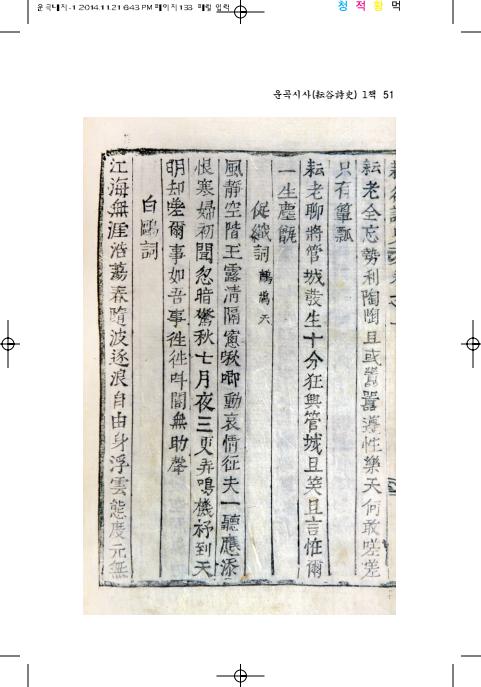 운곡내지-1 2014.11.21 6:43 PM 페이지133
청 적 황 먹
운곡시사(耘谷詩史) 1책 51
耘老全忘勢利陶陶且或囂囂遵性樂天何敢嗟差
只有簞瓢
耘老聊將管城發生十分狂興管城且笑且言恠爾
一生塵甑
促織詞 鷓鴣天
風靜空階玉露清隔窓啾唧動哀情征夫一聽應添
恨寒婦初聞忽暗驚秋七月夜三更弄鳴機杼到天
明却嗟爾事如吾事徃徃呌閽無助聲
白鷗詞
江海無涯浩蕩春隨波逐浪自由身浮雲態度元無